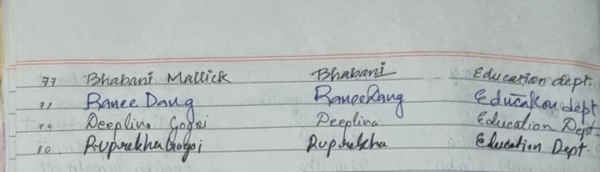 77 Bhabani Mallick Bhabani Education dept.
78 Ranee Dang Ranee Dang Education dept
79 Deeplina Gogoi Deeplina Education Dept.
80 Ruprekha Gogoi Ruprekha Education Dept